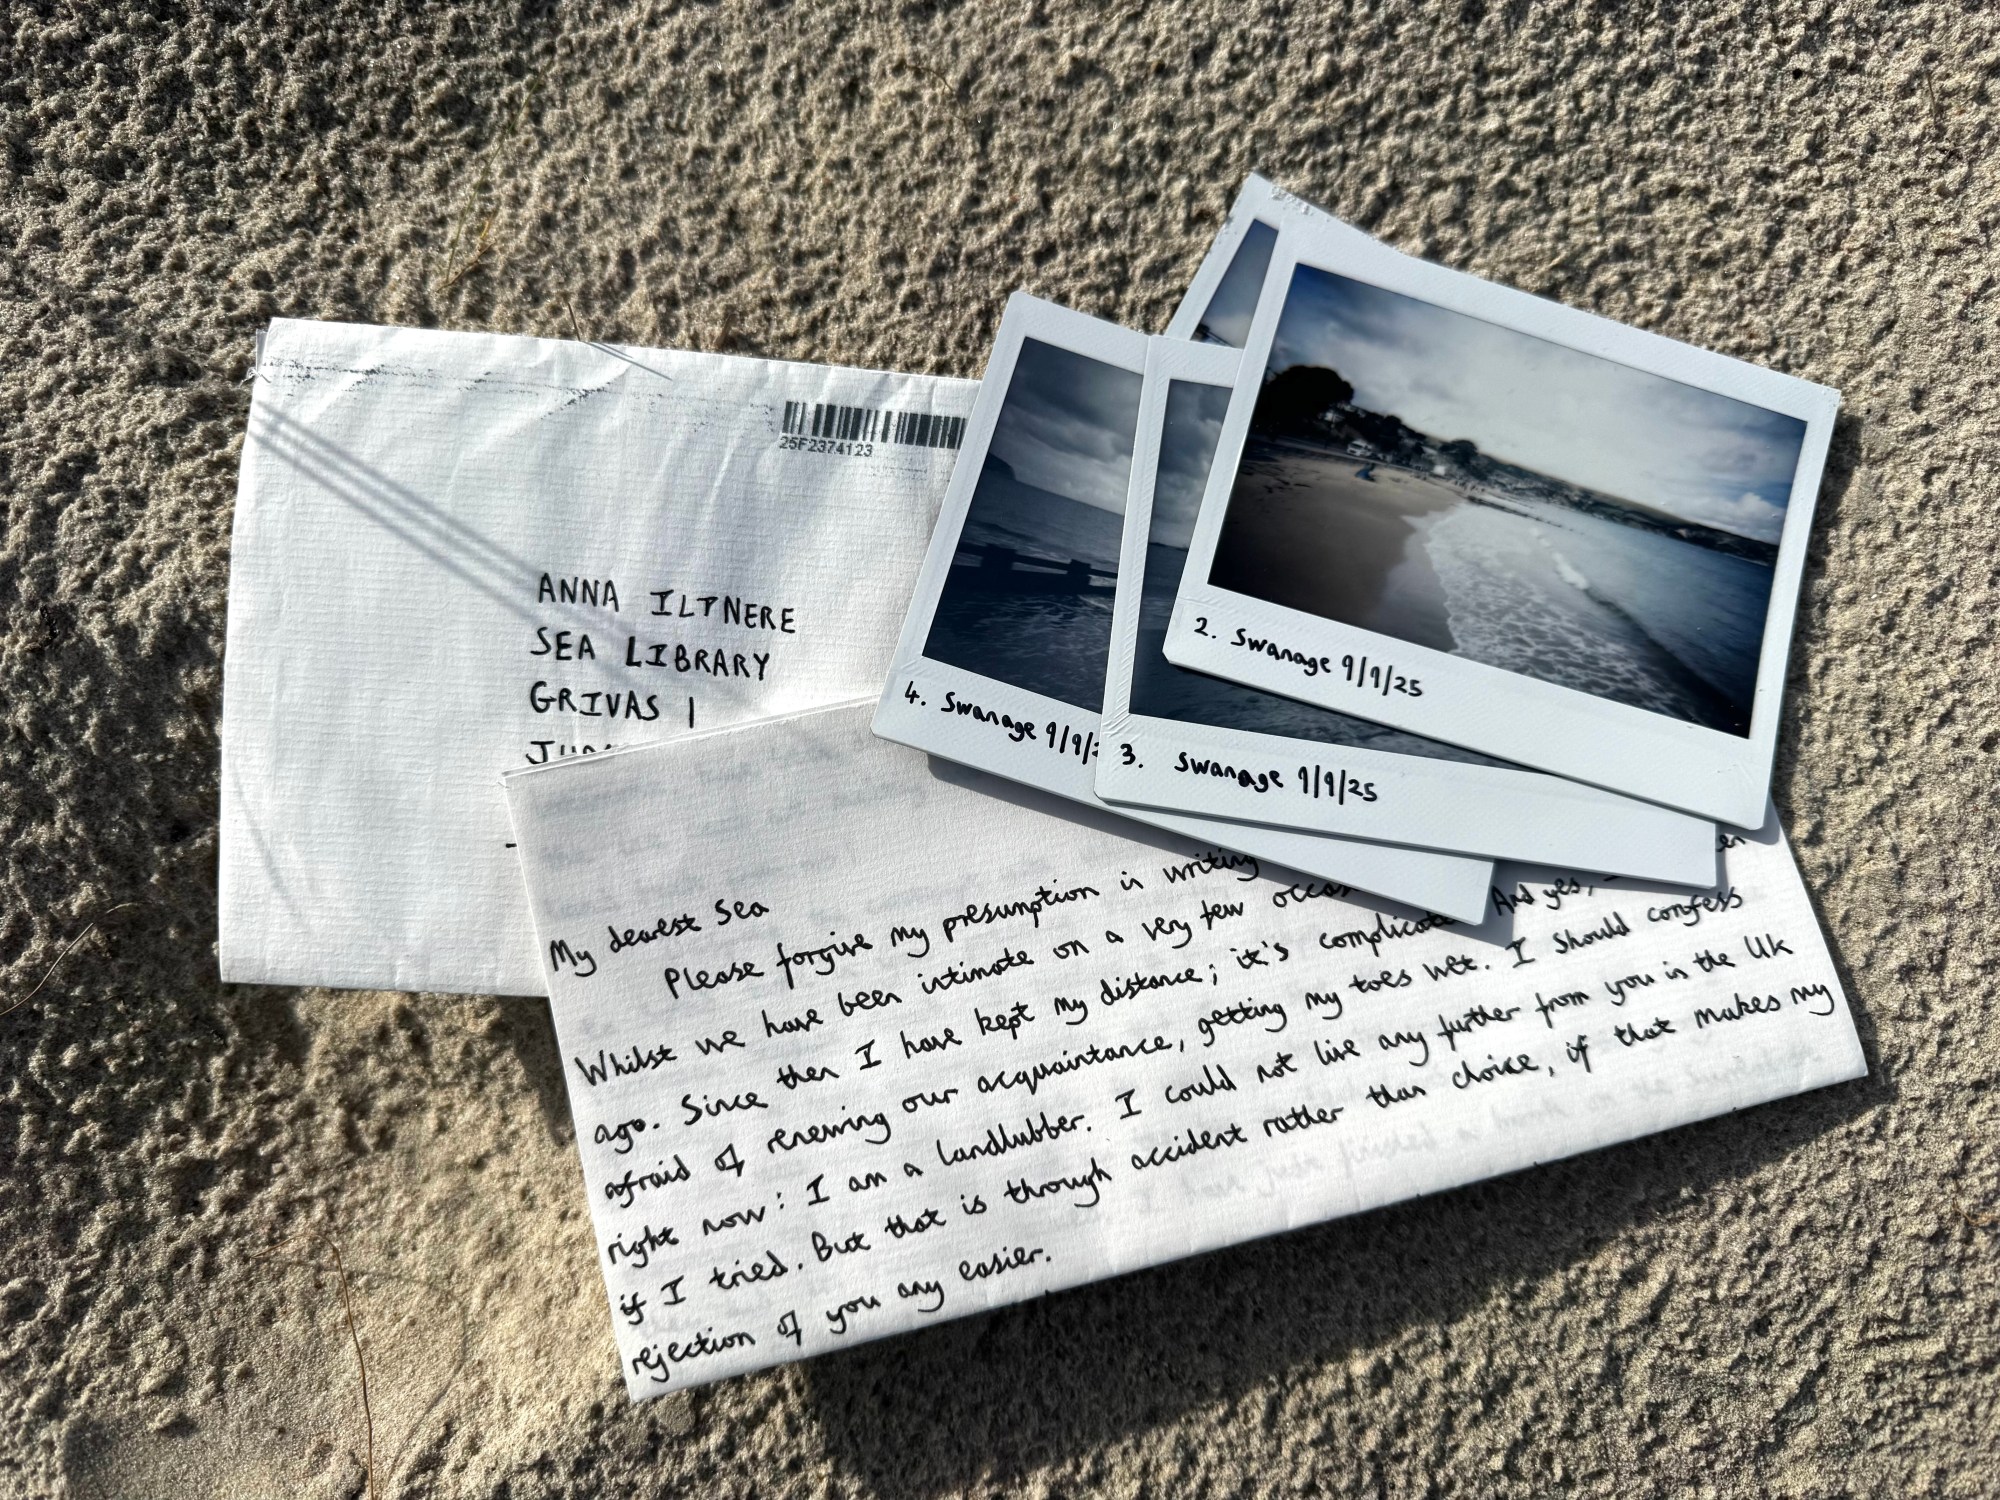 25F2374123
ANNA ILTNERE
SEA LIBRARY
GRIVAS 1
4. Swanage 9/9/
3. Swanage 9/9/25
2. Swanage 9/9/25
My dearest Sea
Please forgive my presumption in writing
Whilst we have been intimate on a very few
ago. Since then I have kept my distance; it's And yes,
afraid of renewing our acquaintance, getting my toes wet. I should confess
right now: I am a landlubber. I could not live any further from you in the UK
if I tried. But that is through accident rather than choice, if that makes my
rejection of you any easier.